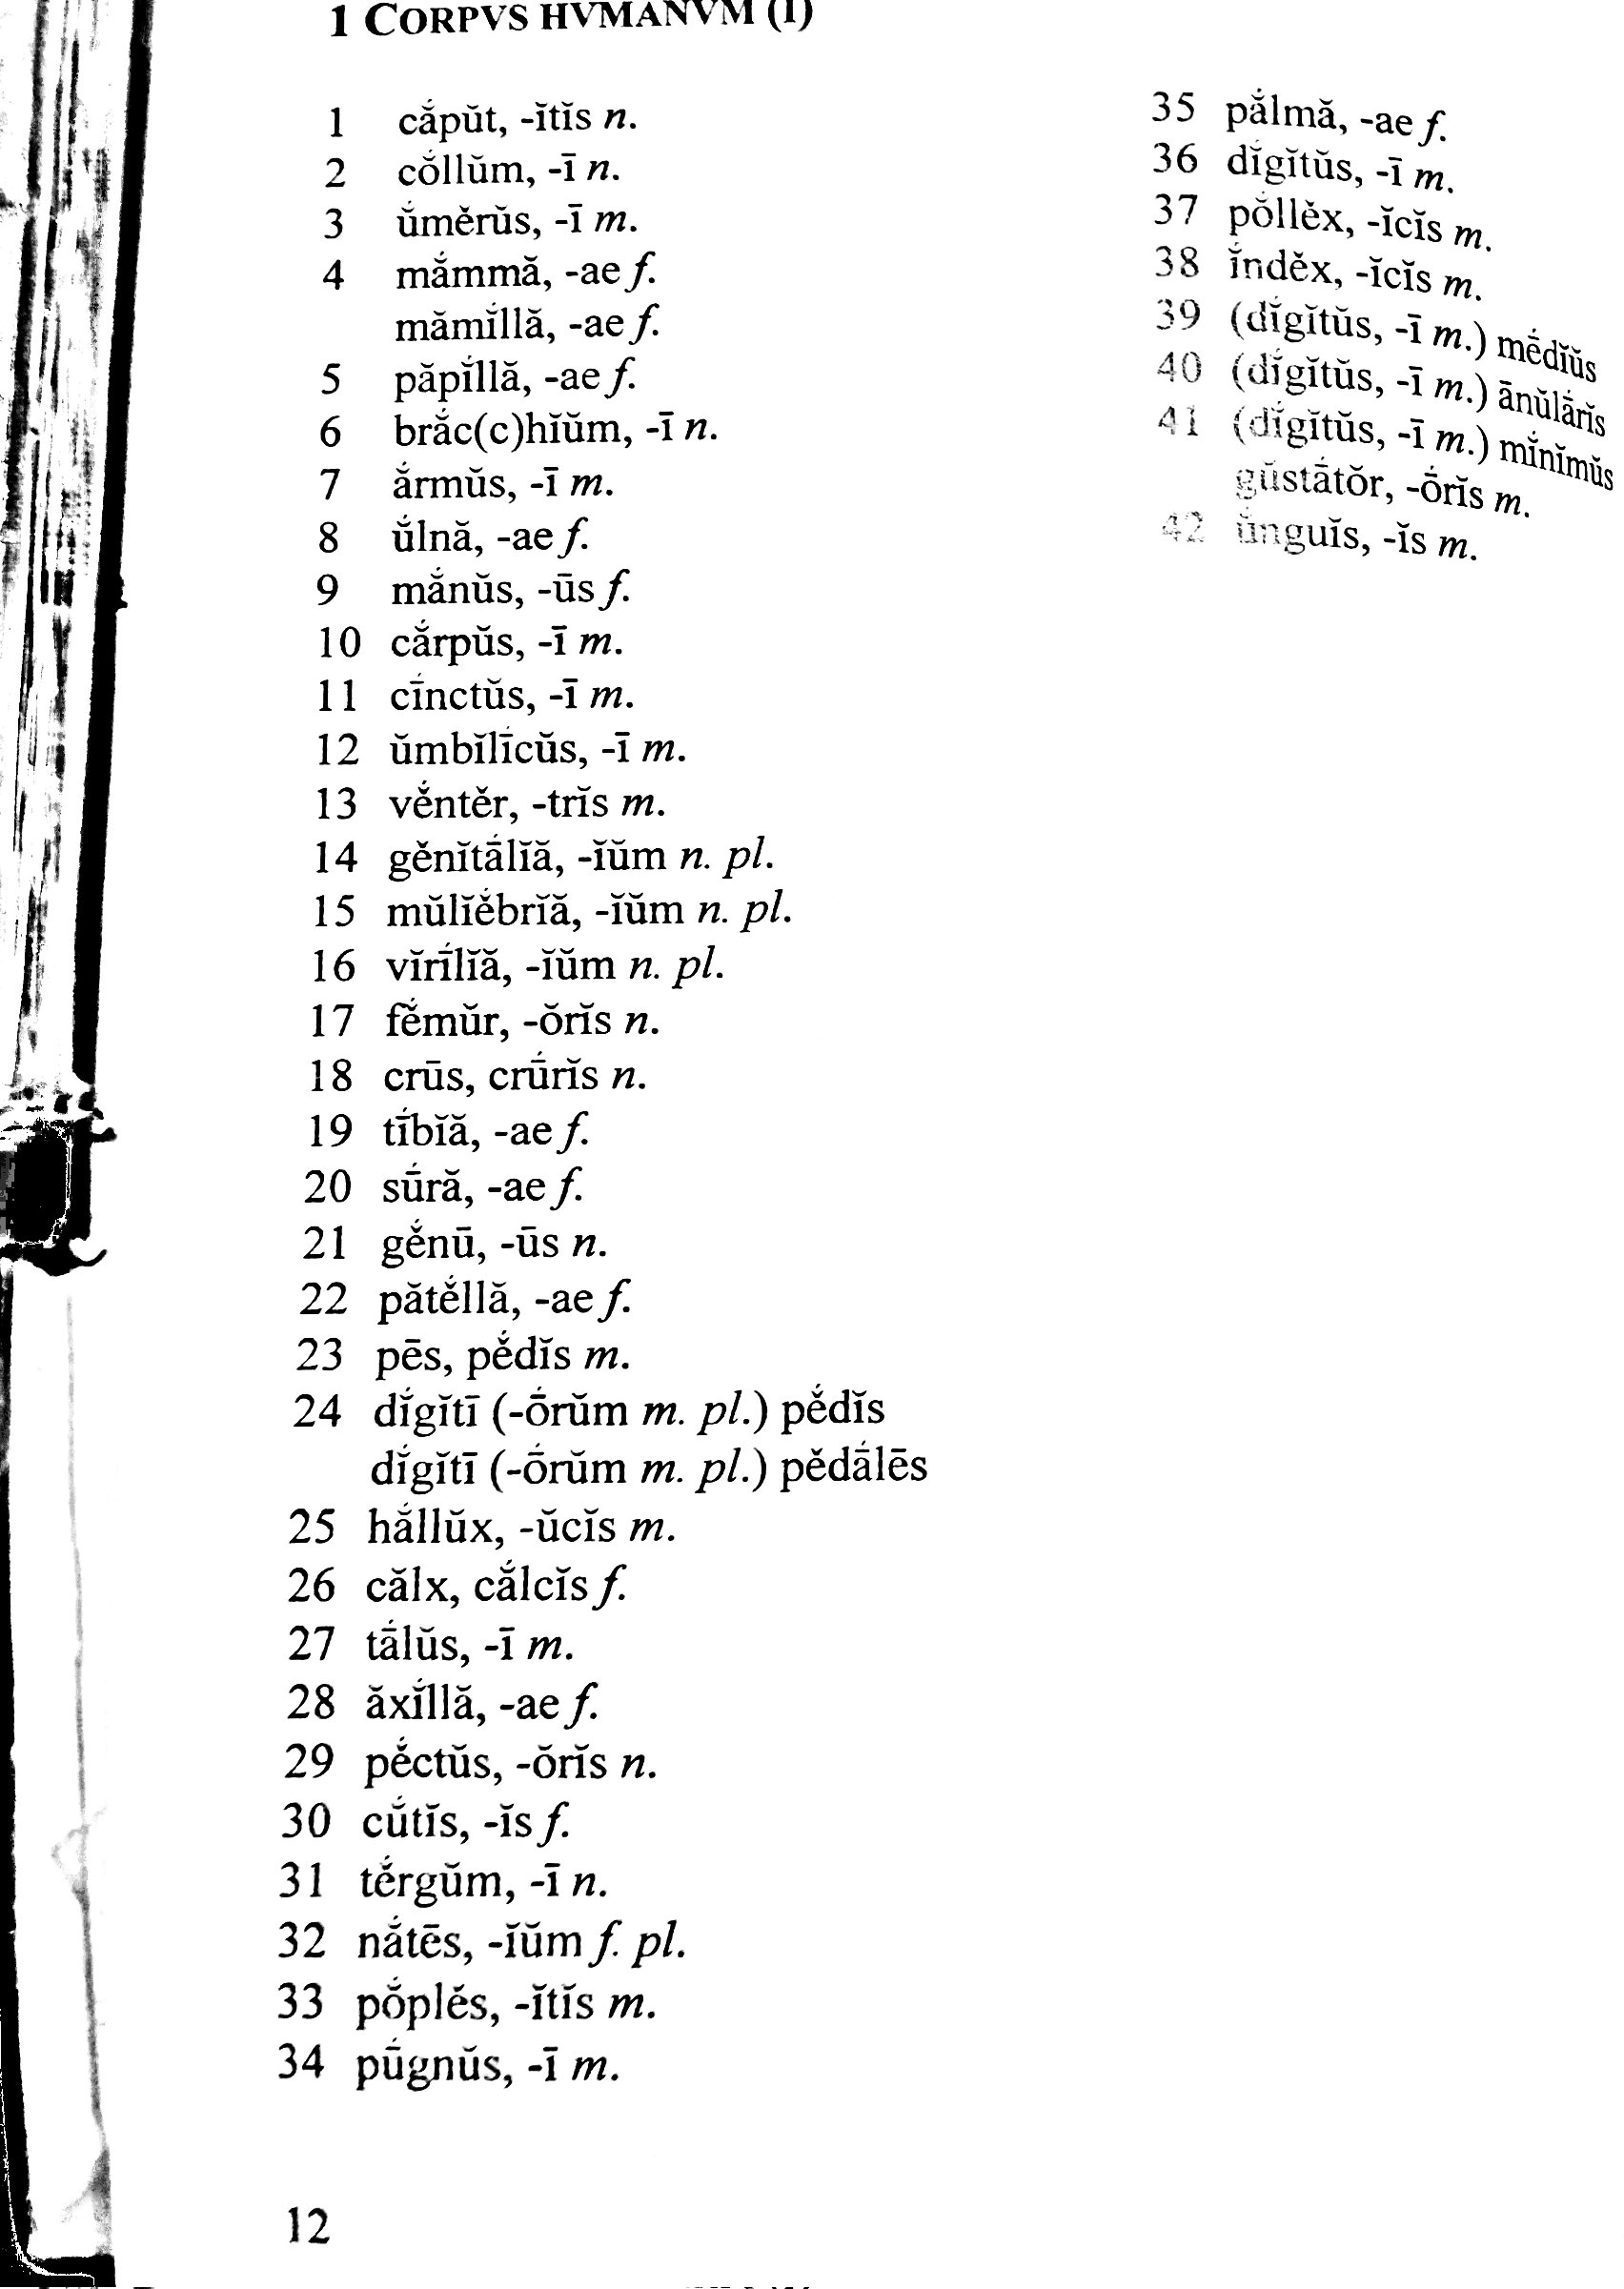 1 CORPVS HVMANVM (I)
1 cắpŭt, -ĭtĭs n.
2 cŏ́llŭm, -ī n.
3 ŭ́mĕrŭs, -ī m.
4 mắmmă, -ae f.
mămĭ́llă, -ae f.
5 păpĭ́llă, -ae f.
6 brắc(c)hĭŭm, -ī n.
7 ắrmŭs, -ī m.
8 ŭ́lnă, -ae f.
9 mắnŭs, -ūs f.
10 cắrpŭs, -ī m.
11 cī́nctŭs, -ī m.
12 ŭmbĭlī́cŭs, -ī m.
13 vĕ́ntĕr, -trĭs m.
14 gĕnĭtā́lĭă, -ĭŭm n. pl.
15 mŭlĭĕ́brĭă, -ĭŭm n. pl.
16 vĭrī́lĭă, -ĭŭm n. pl.
17 fĕ́mŭr, -ŏrĭs n.
18 crūs, crū́rĭs n.
19 tī́bĭă, -ae f.
20 sū́ră, -ae f.
21 gĕ́nū, -ūs n.
22 pătĕ́llă, -ae f.
23 pēs, pĕ́dĭs m.
24 dĭ́gĭtī (-ṓrŭm m. pl.) pĕ́dĭs
dĭ́gĭtī (-ṓrŭm m. pl.) pĕdā́lēs
25 hắllŭx, -ŭcĭs m.
26 călx, cắlcĭs f.
27 tā́lŭs, -ī m.
28 ăxĭ́llă, -ae f.
29 pĕ́ctŭs, -ŏrĭs n.
30 cŭ́tĭs, -ĭs f.
31 tĕ́rgŭm, -ī n.
32 nắtēs, -ĭŭm f. pl.
33 pŏ́plĕs, -ĭtĭs m.
34 pū́gnŭs, -ī m.
35 pắlmă, -ae f.
36 dĭ́gĭtŭs, -ī m.
37 pŏ́llĕx, -ĭcĭs m.
38 ĭ́ndĕx, -ĭcĭs m.
39 (dĭ́gĭtŭs, -ī m.) mĕ́dĭŭs
40 (dĭ́gĭtŭs, -ī m.) ānŭlā́rĭs
41 (dĭ́gĭtŭs, -ī m.) mĭ́nĭmŭs
gŭstā́tŏr, -ṓrĭs m.
42 ŭ́nguĭs, -ĭs m.
12